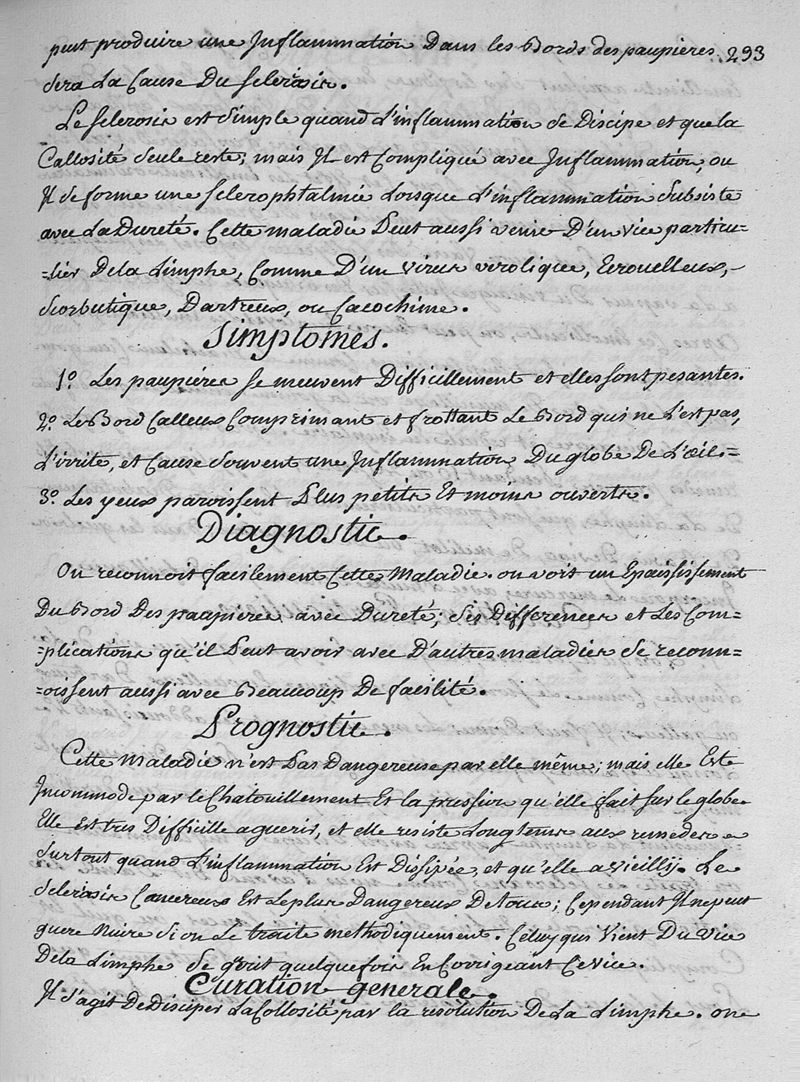 peut produire une Inflammation Dans les Bords des paupieres. 293
sera La Cause Du sclerosis.
Le sclerosis est simple quand L'inflammation se Discipe et que la
Callosité seule reste; mais Il est Compliqué avec Inflammation, ou
Il se forme une sclerophtalmie Lorsque L'inflammation subsiste
avec La Dureté. Cette maladie Peut aussi venir D'un vice particu=
=lier De la Limphe, Comme D'un virus verolique, Ecrouelleux,
Scorbutique, Dartreux, ou Cacochime.
Simptomes.
1º. Les paupieres se meuvent Difficillement et elles sont pesantes.
2º. Le Bord Calleux Comprimant et frottant Le Bord qui ne L'est pas,
L'irrite, et Cause souvent une Inflammation Du globe De L'œil.=
3º. Les yeux paroissent Plus petits Et moins ouverts.
Diagnostic.
On reconnoit facilement Cette Maladie. on voit un Epaississement
Du Bord Des paupieres avec Dureté; ses Differences et Les Com=
=plications qu'il Peut avoir avec D'autres maladies se reconn=
=oissent aussi avec Beaucoup De facilité.
Prognostic.
Cette Maladie n'est Pas Dangereuse par elle même; mais elle Est
Incommode par le Chatouillement Et la pression qu'elle fait sur le globe
Elle Est tres Difficille a guerir, et elle resiste Longtems aux remedes
surtout quand L'inflammation Est Dissipée, et qu'elle a vieilly. Le
Sclerosis Cancereux Est Le plus Dangereux De tous; Cependant Il ne peut
guere Nuire si on Le traite methodiquement. Celuy qui Vient Du vice
De la Limphe se guerit quelquefois En Corrigeant Ce vice.
Curation generale.
Il s'agit De Disciper La Collosité par la resolution De La Limphe. one